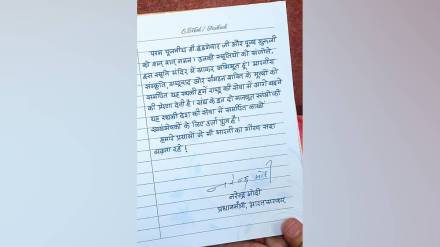 परम पूजनीय डॉ. हेडगेवार जी और पूज्य गुरुजी
को शत् शत् नमन। उनकी स्मृतियों को संजोते,
इस स्मृति मंदिर में आकर अभिभूत हूं। भारतीय
संस्कृति, राष्ट्रवाद और संगठन शक्ति के मूल्यों को
समर्पित यह स्थली हमें राष्ट्र की सेवा में आगे बढ़ने
की प्रेरणा देती है। संघ के इन दो मजबूत स्तंभों की
यह स्थली देश की सेवा में समर्पित लाखों
स्वयंसेवकों के लिए ऊर्जा पुंज है।
हमारे प्रयासों से माँ भारती का गौरव सदा
बढ़ता रहे!
नरेन्द्र मोदी
नरेन्द्र मोदी
प्रधानमंत्री, भारत सरकार